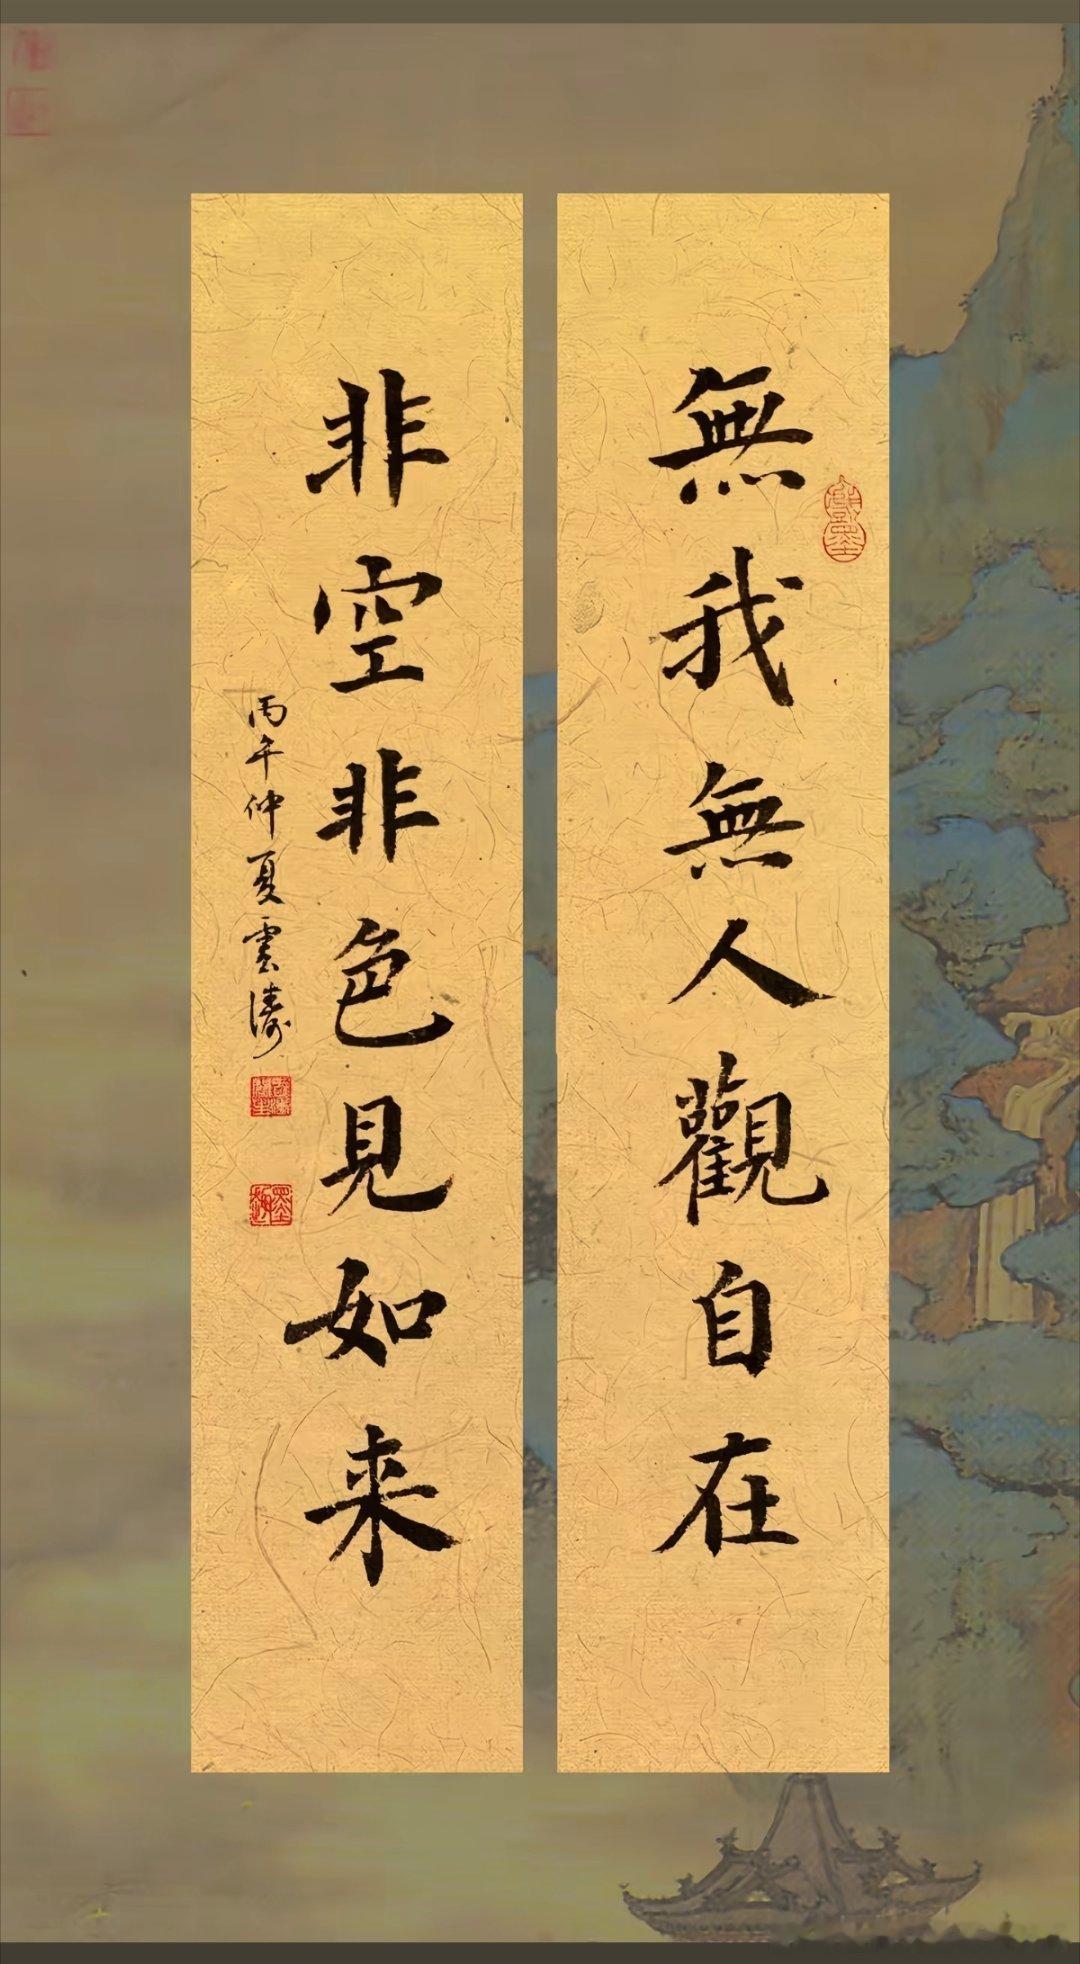 無我無人觀自在
非空非色見如来
丙午仲夏雲濤